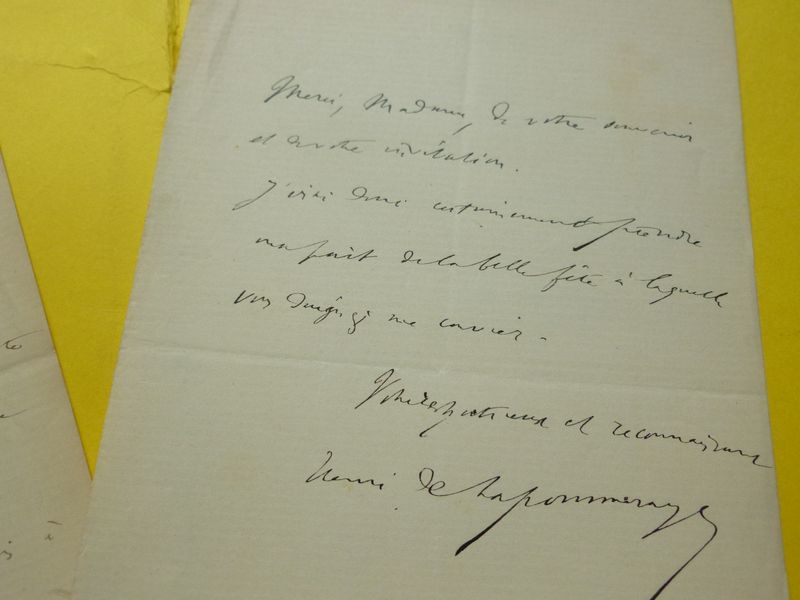 Merci, Madame, de votre souvenir
et de votre invitation.
J'irai donc certainement prendre
ma part de la belle fête à laquelle
vous daignez me convier.
Votre respectueux et reconnaissant
Henri de Lapommeraye